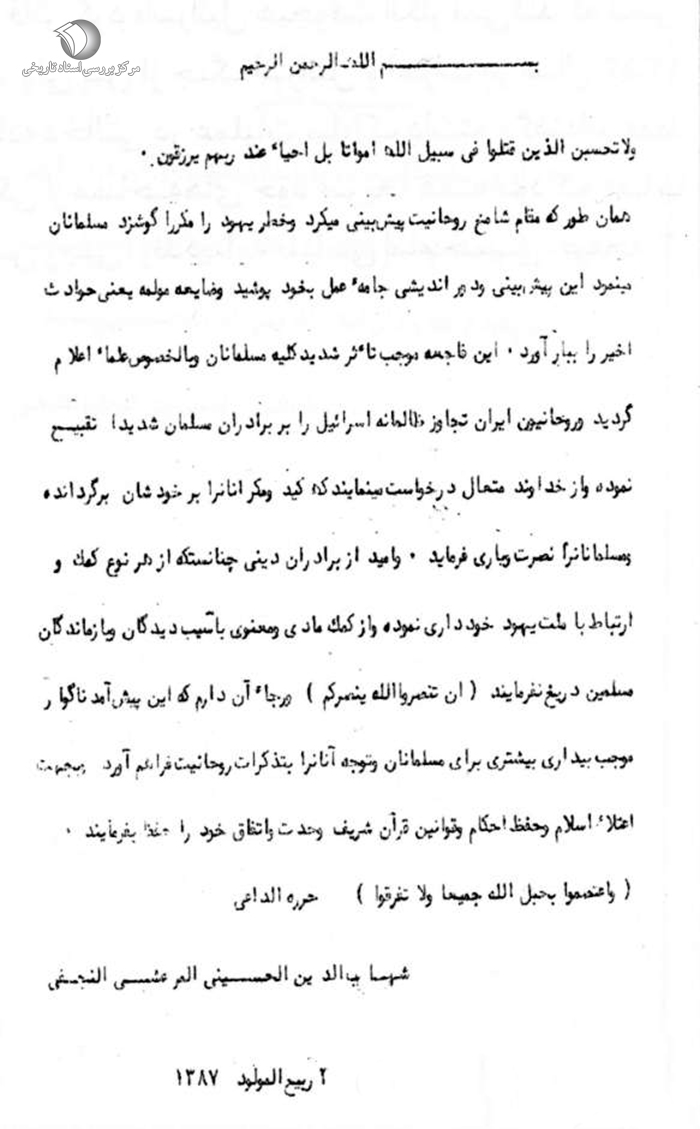 مرکز بررسی اسناد تاریخی
بسم الله الرحمن الرحیم
ولا تحسبن الذین قتلوا فی سبیل الله امواتا بل احیاء عند ربهم یرزقون .
همان طور که مقام شامخ روحانیت پیش‌بینی میکرد وخطر یهود را مکررا گوشزد مسلمانان
مینمود این پیش‌بینی ودور اندیشی جامه عمل بخود پوشید وضایعه مولمه یعنی حوادث
اخیر را ببار آورد . این فاجعه موجب تاءثر شدید کلیه مسلمانان وبالخصوص علماء اعلام
گردید وروحانیون ایران تجاوز ظالمانه اسرائیل را بر برادران مسلمان شدیدا تقبیح
نموده واز خداوند متعال درخواست مینمایند که کید ومکر آنانرا بر خودشان برگردانده
ومسلمانانرا نصرت ویاری فرماید . وامید از برادران دینی چنانستکه از هر نوع کمک و
ارتباط با ملت یهود خودداری نموده واز کمک مادی ومعنوی باسیب دیدگان وبازماندگان
مسلمین دریغ نفرمایند ( ان تنصروا الله ینصرکم ) ورجاء آن دارم که این پیش‌آمد ناگوار
موجب بیداری بیشتری برای مسلمانان وتوجه آنانرا بتذکرات روحانیت فراهم آورد وبجهت
اعتلاء اسلام وحفظ احکام وقوانین قرآن شریف وحدت واتفاق خود را حفظ بفرمایند .
( واعتصموا بحبل الله جمیعا ولا تفرقوا ) حرره الداعی
شهاب الدین الحسینی المرعشی النجفی
۲ ربیع المولود ۱۳۸۷